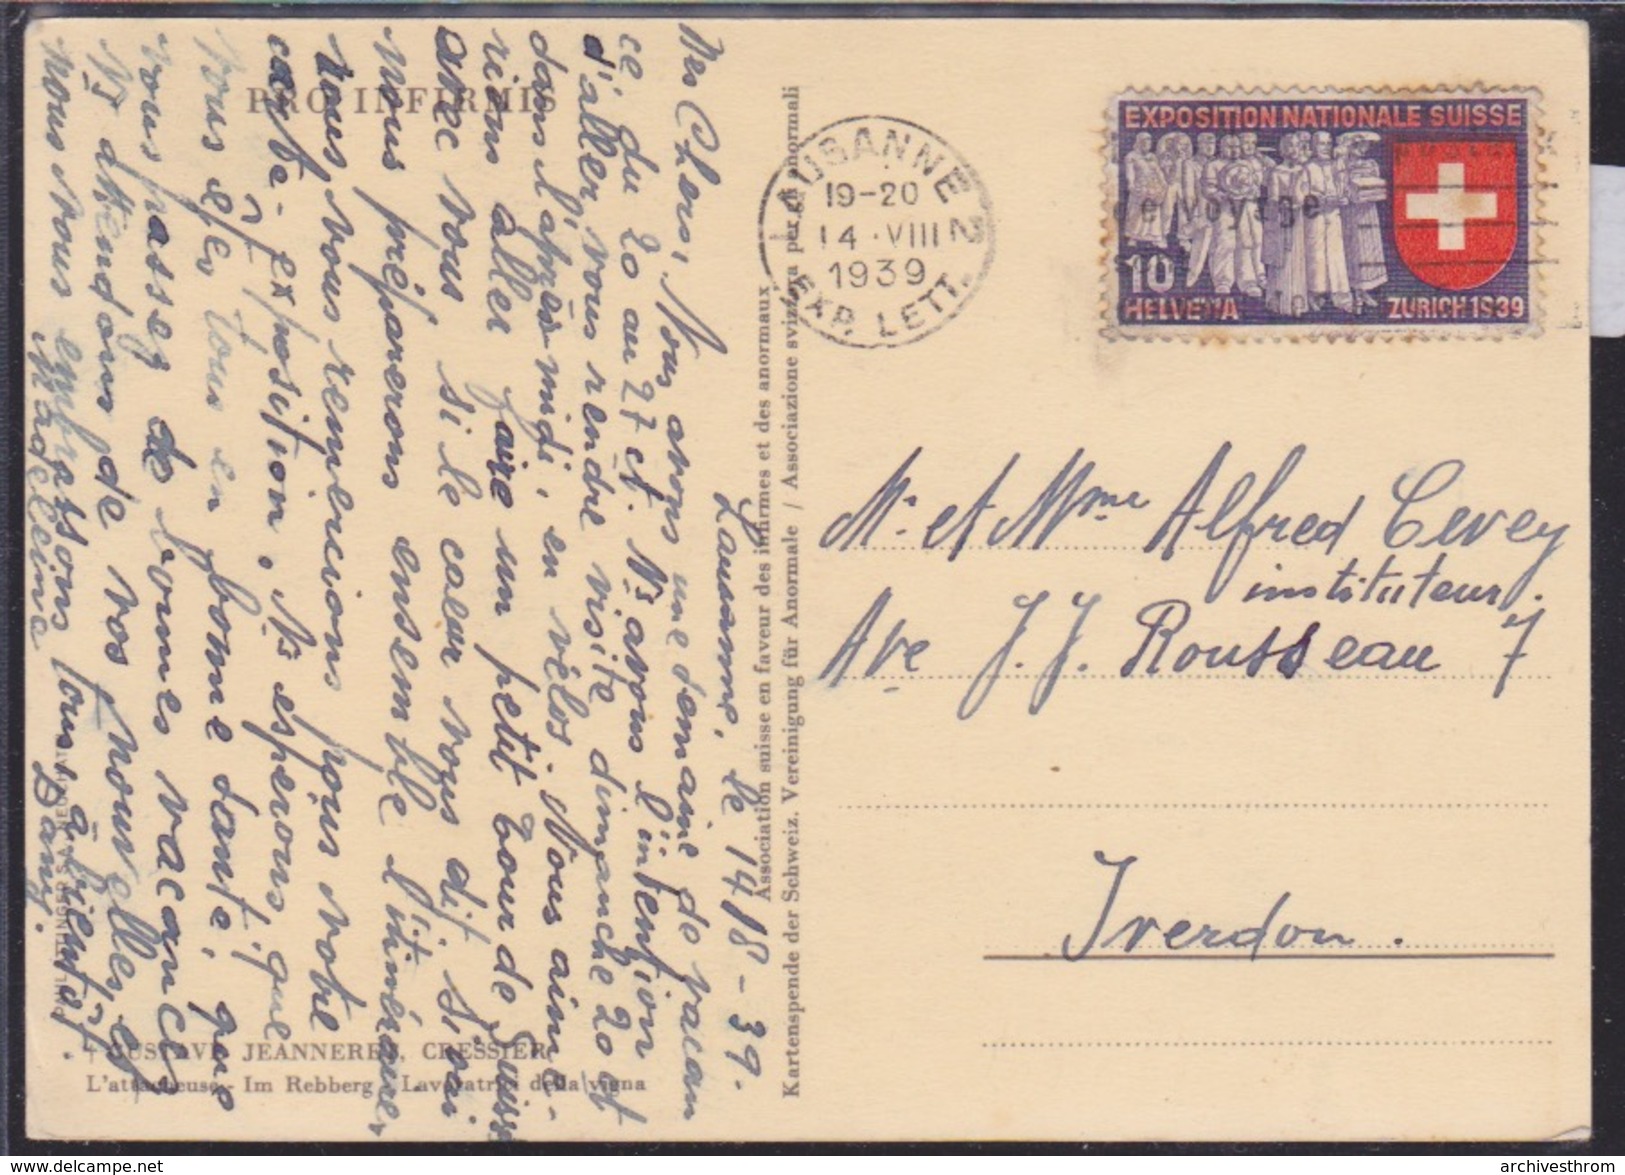 PRO INFIRMIS
Lausanne, le 14/8-39.
Mes Chers, Nous avons une semaine de vacan
ce, du 20 au 27 ct. Ns avons l'intention
d'aller vous rendre visite dimanche 20 ct
dans l'après-midi, en vélos. Nous aime-
rions aller faire un petit tour de Suisse
avec vous, si le cœur vous dit. S'oui
nous préparerons ensemble l'itinéraire.
Nous vous remercions pour votre
carte-exposition. Ns espérons que
vous êtes tous en bonne santé, que
vous passez de bonnes vacances
Ns attendons de vos nouvelles, et
nous vous embrassons tous à bientôt.
Madeleine Dany.
† GUSTAVE JEANNERET, CRESSIER
L'attacheuse - Im Rebberg - Lavoratrici della vigna
Association suisse en faveur des infirmes et des anormaux
Kartenspende der Schweiz. Vereinigung für Anormale / Associazione svizzera per gli anormali
LAUSANNE 2
19-20
14.VIII
1939
EXP. LETT.
EXPOSITION NATIONALE SUISSE
de voyage
10
HELVETIA ZURICH 1939
Mr et Mme Alfred Cevey
instituteur.
Ave J.J. Rousseau 7
Yverdon.
archivesthrom
www.delcampe.net